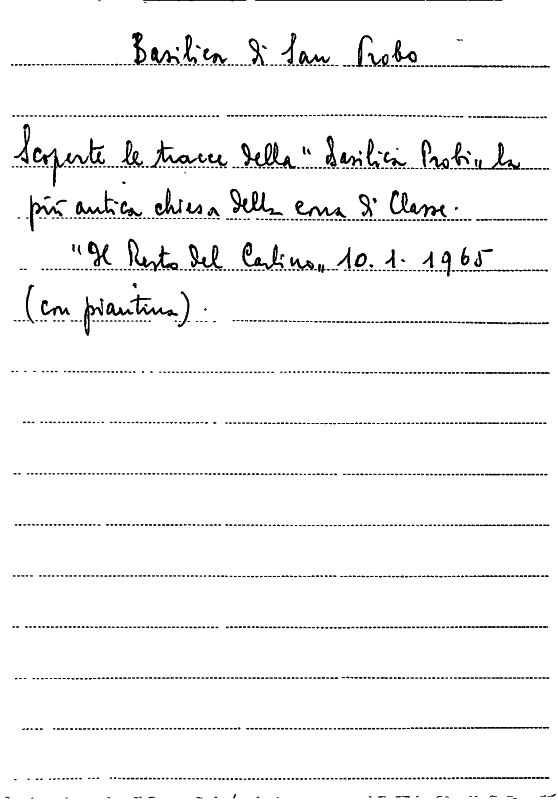 Basilica di San Probo
Scoperte le tracce della "Basilica Probi" la
più antica chiesa della zona di Classe.
"Il Resto del Carlino" 10.1.1965
(con piantina).